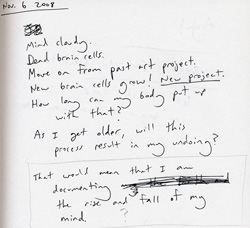 Nov. 6 2008
Mind cloudy.
Dead brain cells.
Move on from past art project.
New brain cells grow! New project.
How long can my body put up
with that?
As I get older, will this
process result in my undoing?
That would mean that I am
documenting
the rise and fall of my
mind.
?